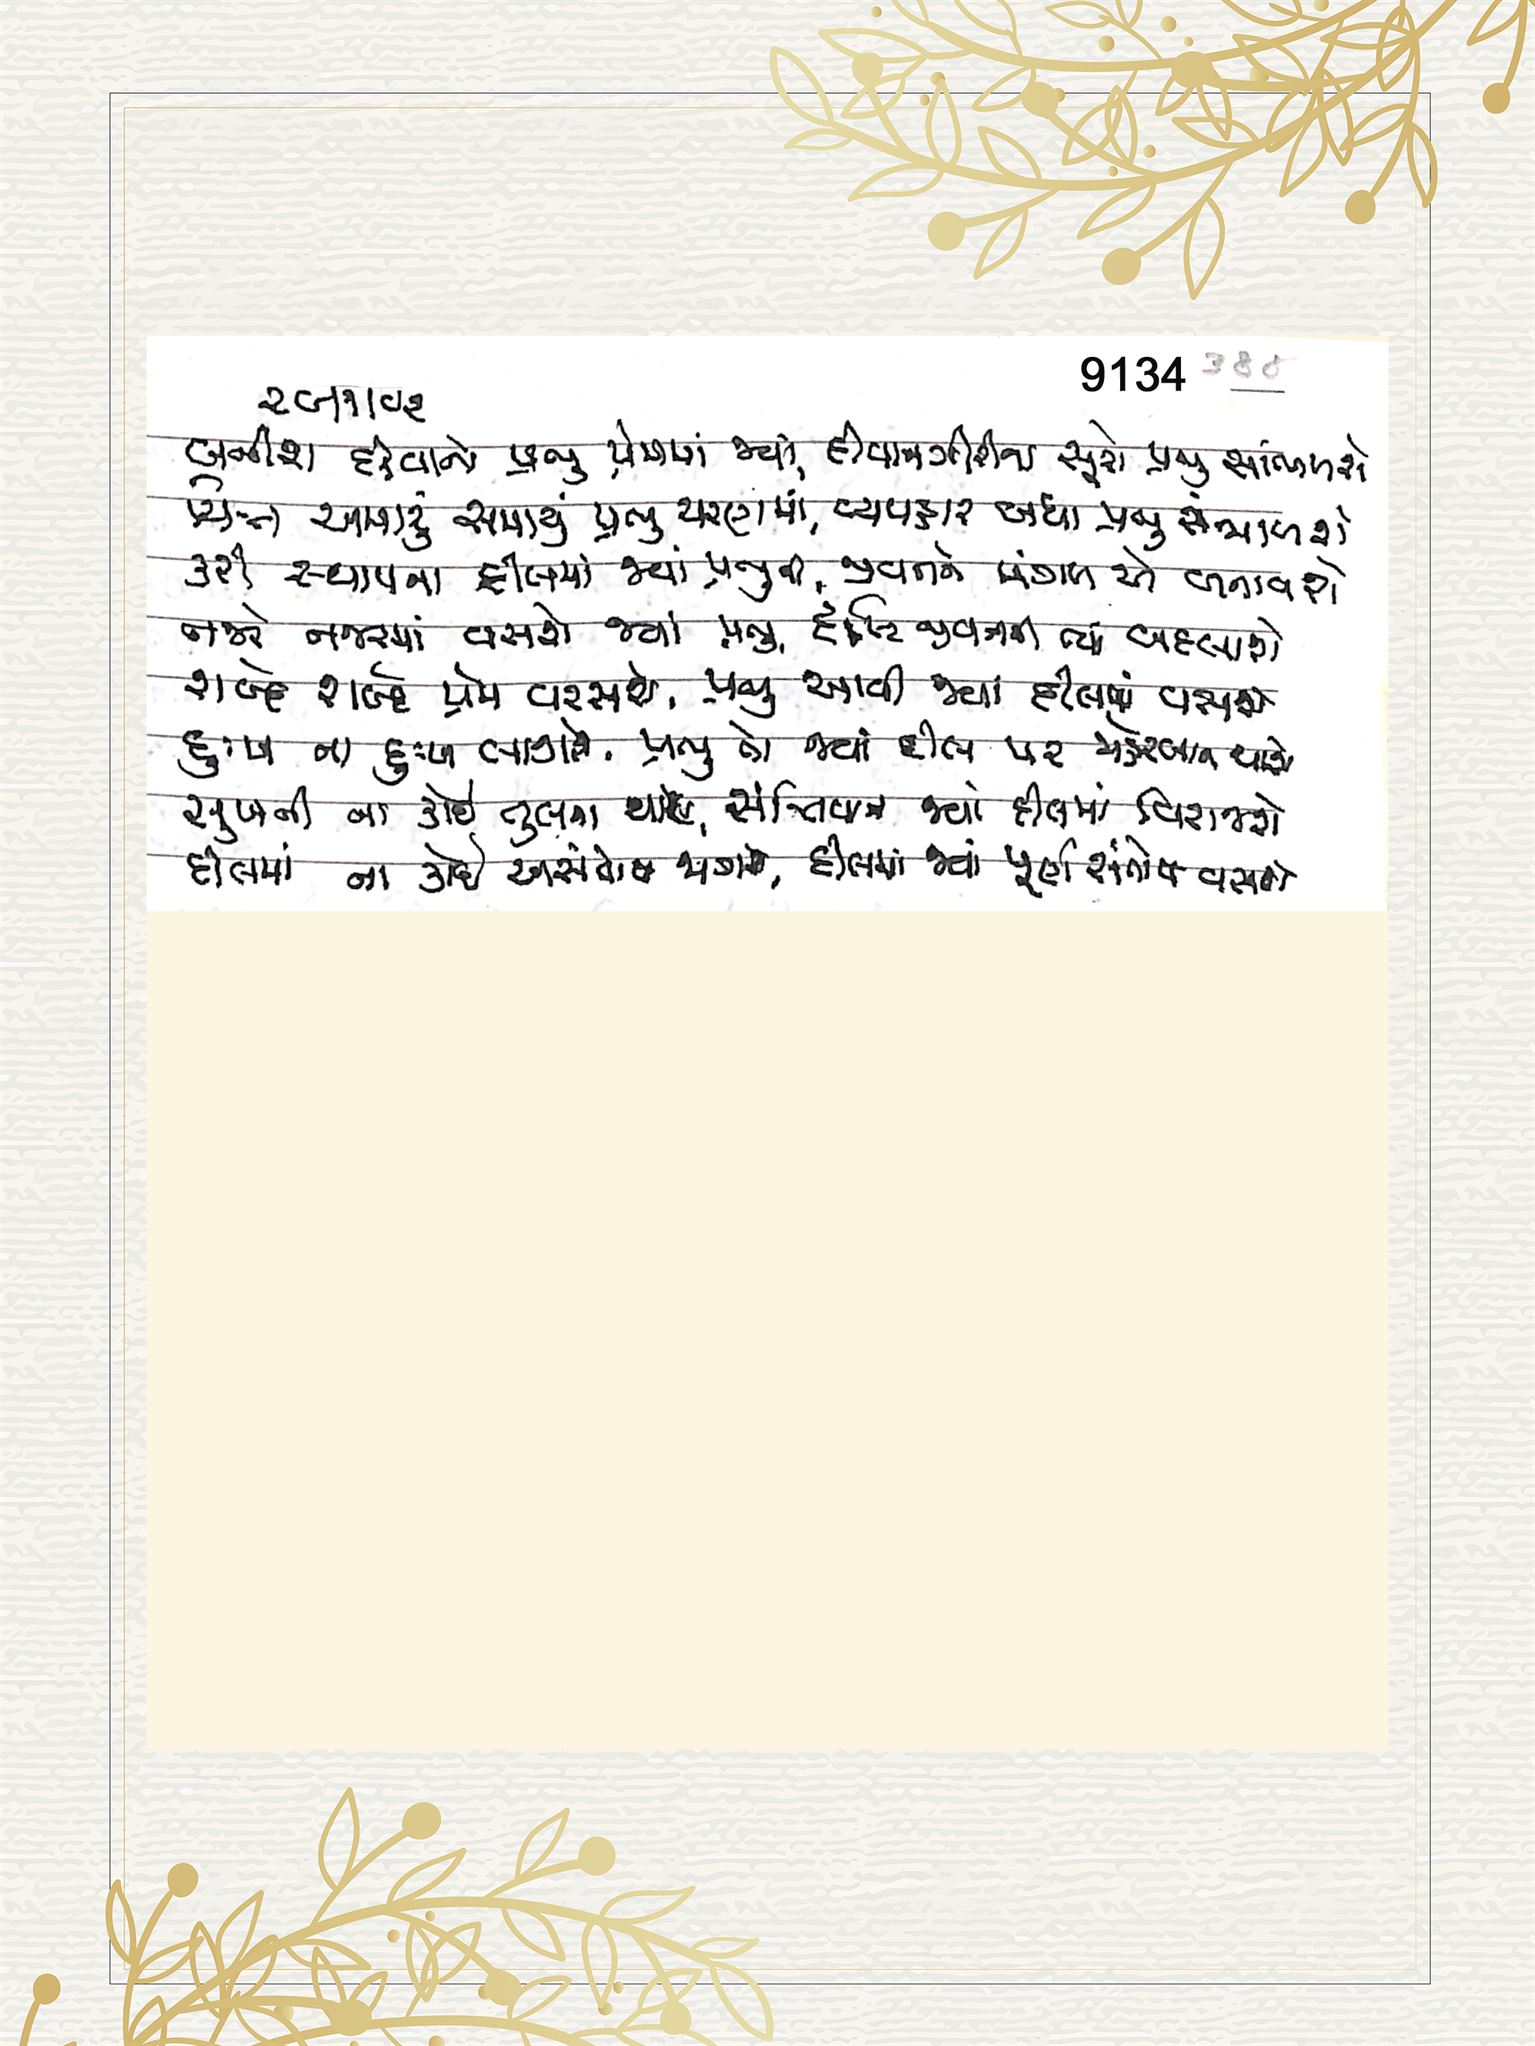 9134 ३८८
બનીશ દીવાનો પ્રભુ પ્રેમમાં જ્યાં, દીવાનગીના સૂરો પ્રભુ સાંભળશે
ચિત્ત આખારું સમાયું પ્રભુ ચરણમાં, વ્યવહાર બધા પ્રભુ સંભાળશે
કરી સ્થાપના દીલમાં જ્યાં પ્રભુની, જીવનને મંગળ એ બનાવશે
નજરે નજરમાં વસશે જ્યાં પ્રભુ, દૃષ્ટિ જીવનની ત્યાં બદલાશે
શબ્દે શબ્દે પ્રેમ વરસશે, પ્રભુ આવી જ્યાં દીલમાં વસશે
દુઃખ ના દુઃખ લાગશે, પ્રભુ તો જ્યાં દીલ પર મહેરબાન થાશે
સુખની ના કોઈ તુલના થાશે, શાંતિવાન જ્યાં દીલમાં બિરાજશે
દીલમાં ના કોઈ અસંતોષ જાગશે, દીલમાં જ્યાં પૂર્ણ સંતોષ વસશે